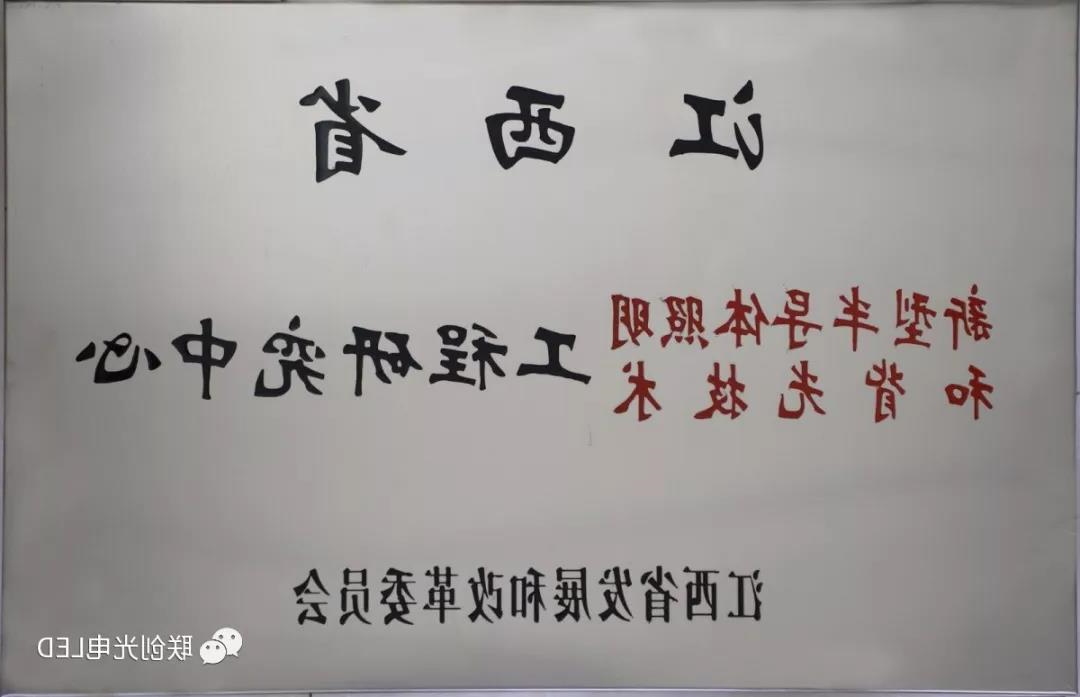 江西省
新型半导体照明
和背光技术
工程研究中心
江西省发展和改革委员会
联创光电LED